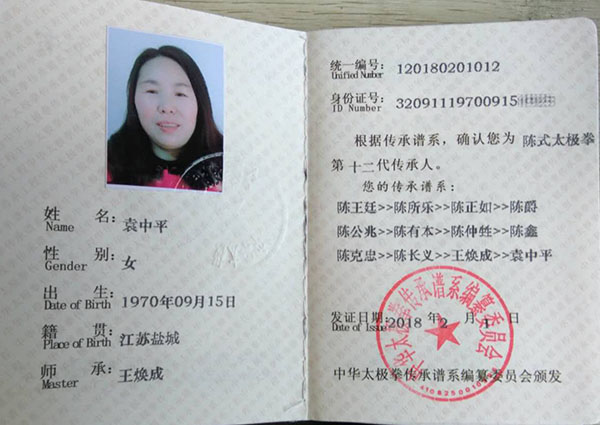 姓 名: 袁中平
Name
性 别: 女
Gender
出 生: 1970年09月15日
Date of Birth
籍 贯: 江苏盐城
Place of Birth
师 承: 王焕成
Master
统一编号: 120180201012
Unified Number
身份证号: 32091119700915
ID Number
根据传承谱系，确认您为 陈式太极拳
第 十二代传承人。
您的传承谱系：
陈王廷>>陈所乐>>陈正如>>陈爵
陈公兆>>陈有本>>陈仲甡>>陈鑫
陈克忠>>陈长义>>王焕成>>袁中平
发证日期: 2018 年 2 月 1 日
Date of Issue
中华太极拳传承谱系编纂委员会
中华太极拳传承谱系编纂委员会颁发